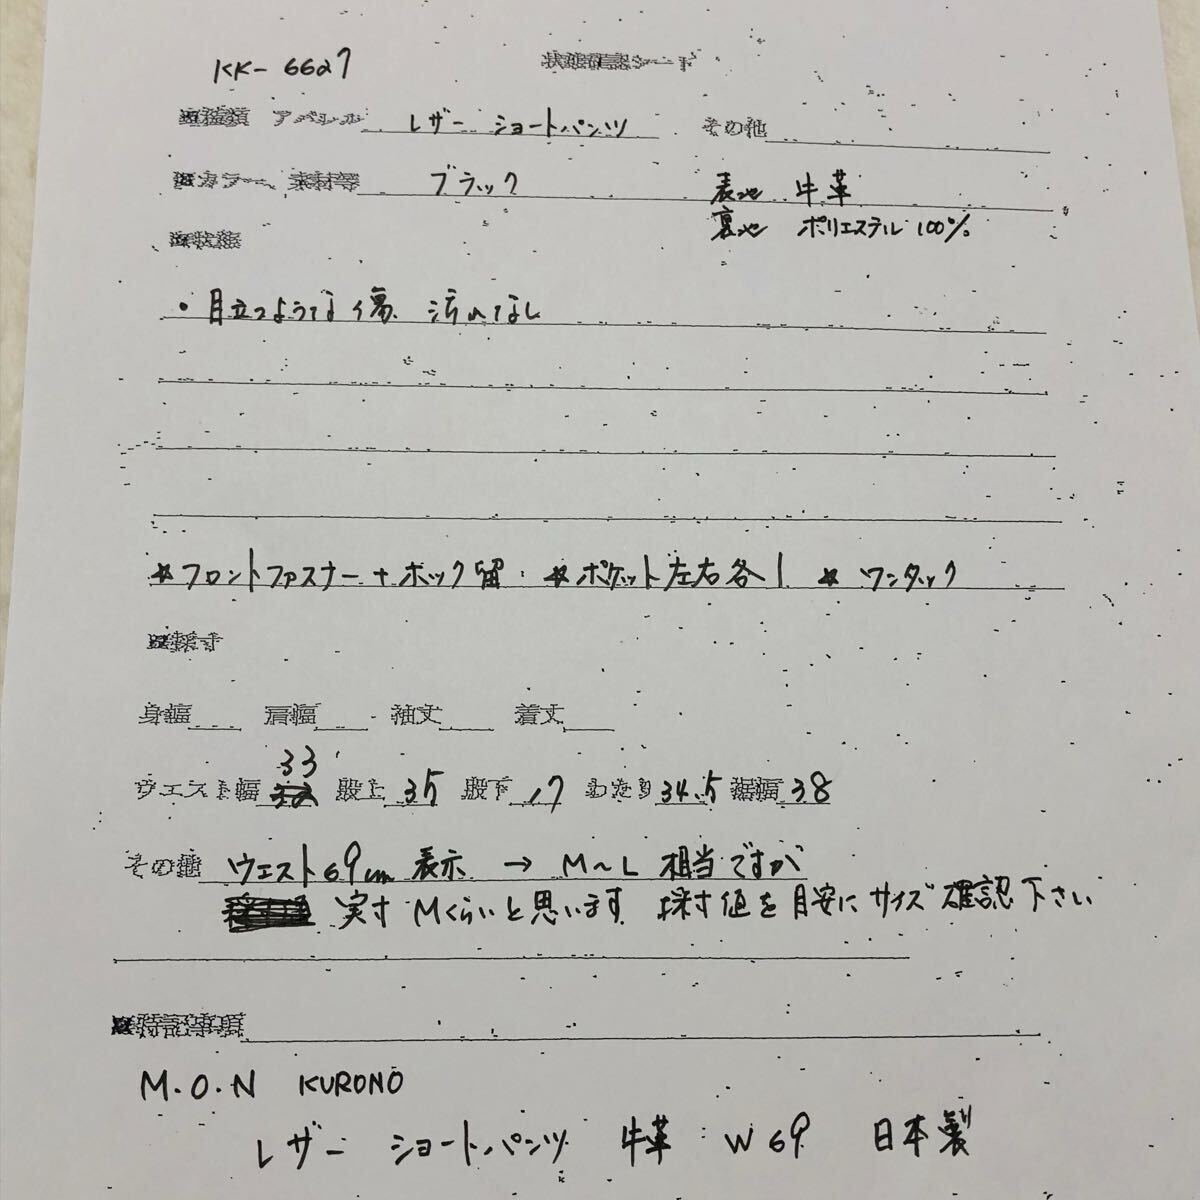 KK-6627 状態確認シート
■種類 アパレル レザー ショートパンツ その他
■カラー、素材等 ブラック 表地 牛革
裏地 ポリエステル 100%
■状態
・目立つような傷、汚れなし
☆フロントファスナー+ホック留 ☆ポケット左右各1 ☆ワンタック
■採寸
身幅 肩幅 袖丈 着丈
ウエスト幅 33 股上 35 股下 17 わたり 34.5 裾幅 38
その他 ウエスト69cm 表示 → M〜L 相当ですが
実寸 Mくらいと思います 採寸値を目安にサイズ確認下さい
■特記事項
M.O.N KURONO
レザー ショートパンツ 牛革 W69 日本製